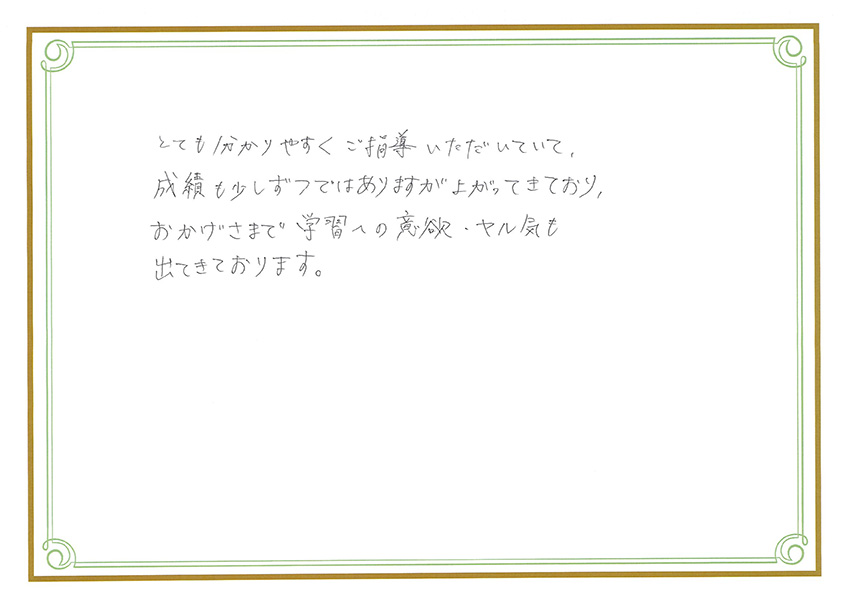 とても分かりやすくご指導いただいていて、
成績も少しずつではありますが上がってきており、
おかげさまで学習への意欲・ヤル気も
出てきております。